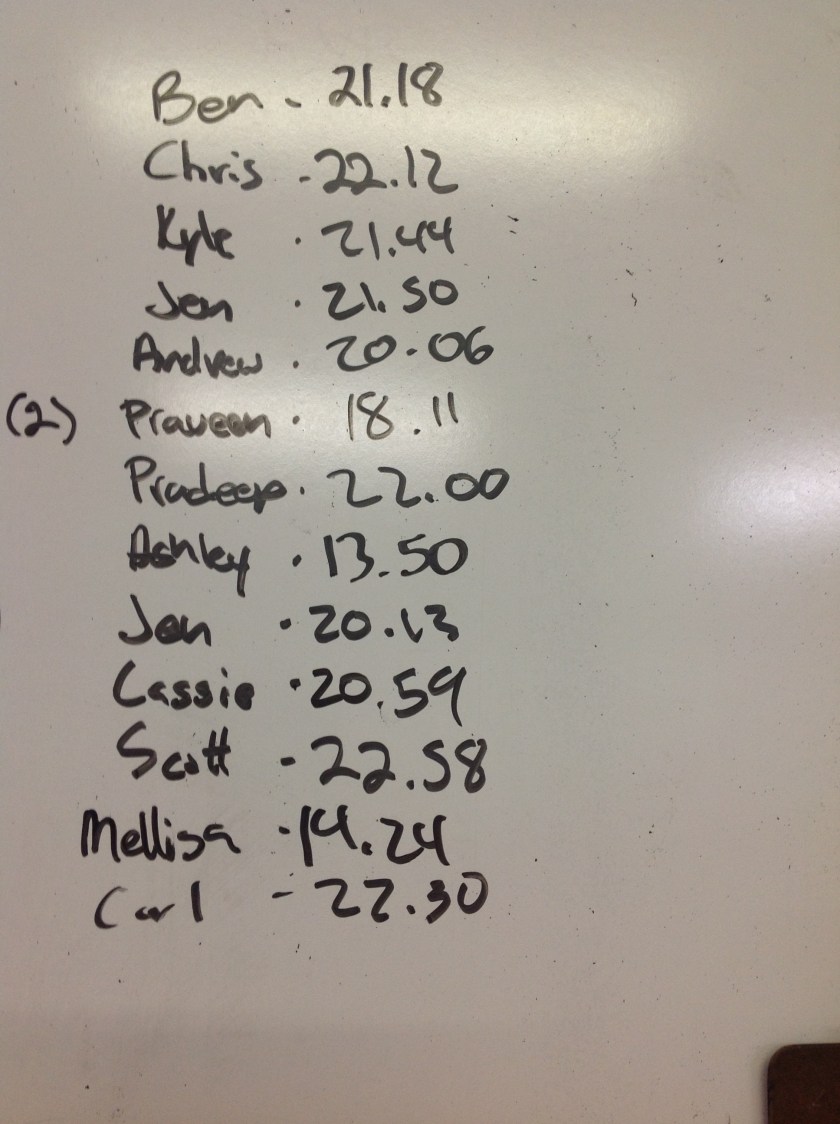 Ben - 21.18
Chris - 22.12
Kyle · 21.44
Jen · 21.50
Andrew · 20.06
(2) Praveen · 18.11
Pradeep · 22.00
Ashley · 13.50
Jon · 20.13
Cassie · 20.59
Scott - 22.58
Mellisa · 14.24
Carl - 22.30